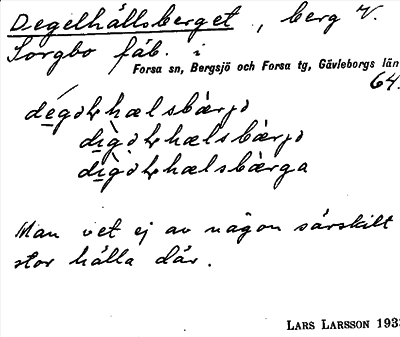 Degelhällsberget, berg V.
Sorgbo fäb. i
Forsa sn, Bergsjö och Forsa tg, Gävleborgs län
64.
Man vet ej av någon särskilt
stor hälla där.
LARS LARSSON 193